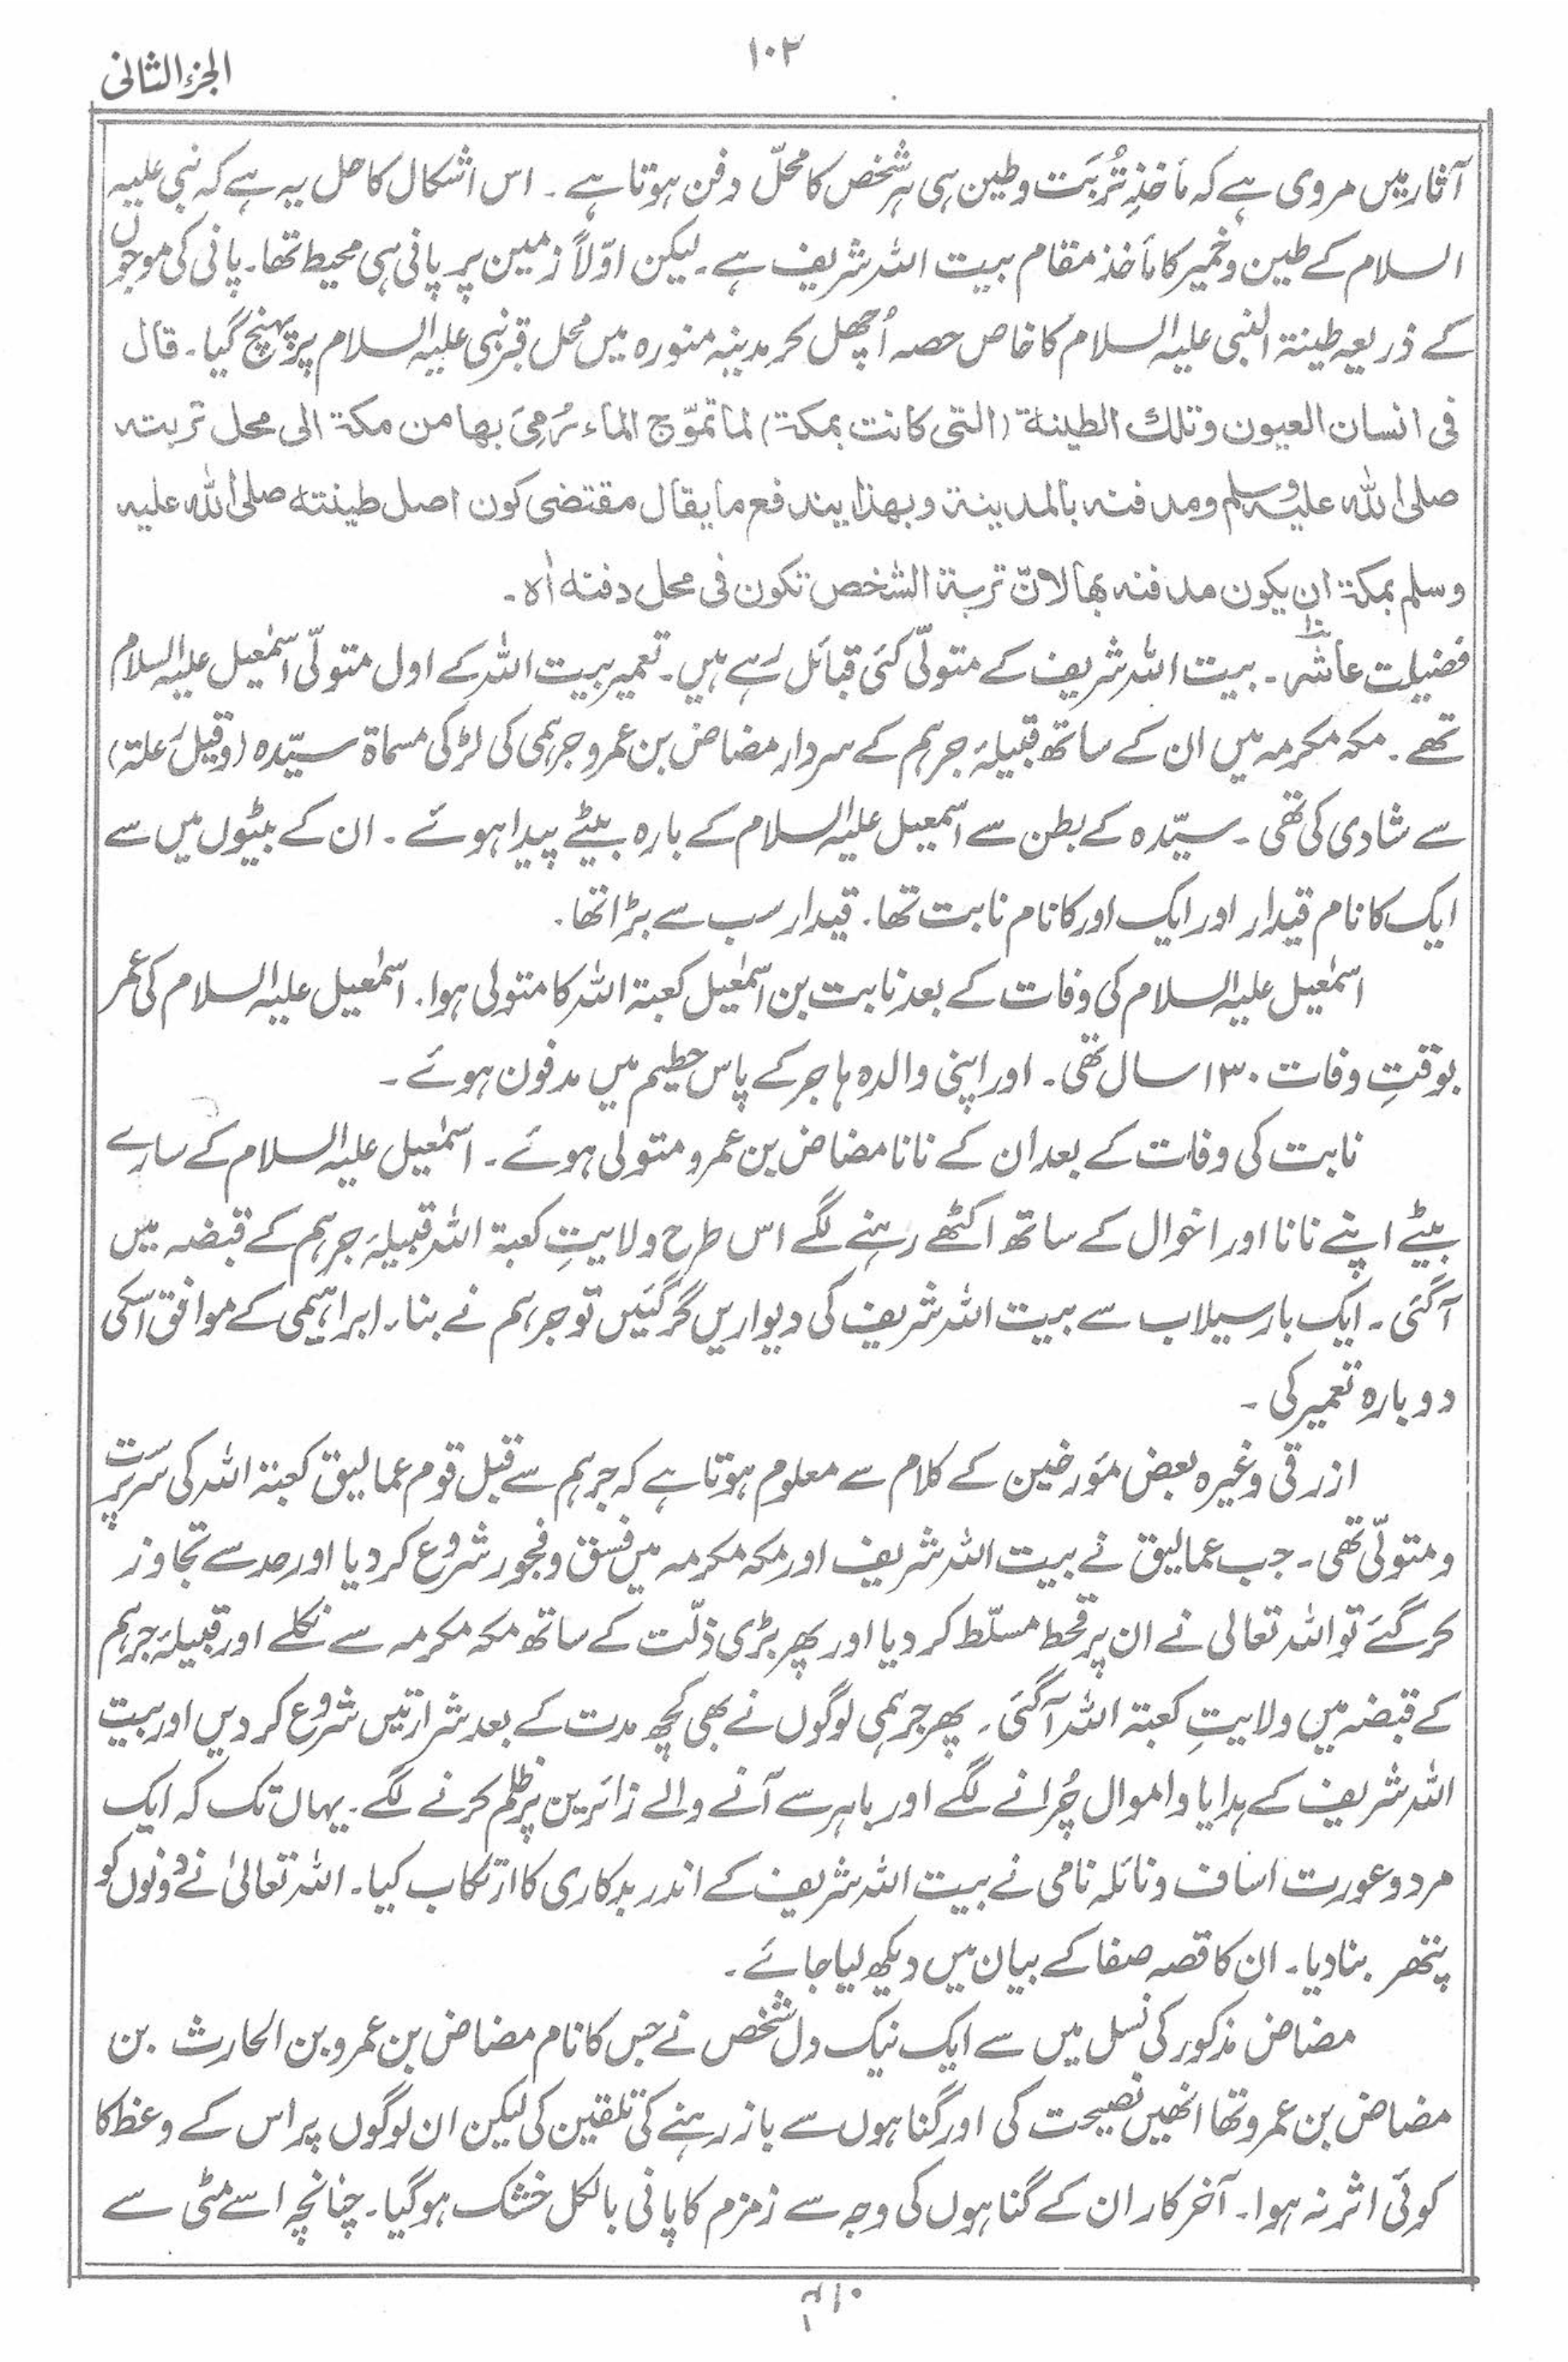 ۱۰۲
الجزء الثانی
آثار میں مروی ہے کہ مأخذِ تُربَت وطین ہی ہر شخص کا محلّ دفن ہوتا ہے ۔ اس اشکال کا حل یہ ہے کہ نبی علیہ
السلام کے طین وخمیر کا مأخذ مقام بیت اللہ شریف ہے۔ لیکن اوّلاً زمین پر پانی ہی محیط تھا۔ پانی کی موجوں
کے ذریعہ طینۃ النبی علیہ السلام کا خاص حصہ اُچھل کر مدینہ منورہ میں محل قبر نبی علیہ السلام پر پہنچ گیا۔ قال
فی انسان العیون وتلك الطینة (التی کانت بمکة) لما تموّج الماء رُمِیَ بها من مکة الی محل تربته
صلی اللہ علیہ وسلم ومدفنه بالمدینة وبهذا یندفع ما یقال مقتضی کون اصل طینته صلی اللہ علیه
وسلم بمکة ان یکون مدفنه بها لانّ تربة الشخص تکون فی محل دفنه اٰه ۔
فضیلت عاشرہ ۔ بیت اللہ شریف کے متولّی کئی قبائل رہے ہیں۔ تعمیر بیت اللہ کے اول متولّی اسمٰعیل علیہ السلام
تھے ۔ مکہ مکرمہ میں ان کے ساتھ قبیلۂ جرہم کے سردار مضاض بن عمرو جرہمی کی لڑکی مسماۃ سیّدہ (وقیل علۃ)
سے شادی کی تھی ۔ سیّدہ کے بطن سے اسمعیل علیہ السلام کے بارہ بیٹے پیدا ہوئے ۔ ان کے بیٹوں میں سے
ایک کا نام قیدار اور ایک اور کا نام نابت تھا۔ قیدار سب سے بڑا تھا ۔
اسمٰعیل علیہ السلام کی وفات کے بعد نابت بن اسمٰعیل کعبۃ اللہ کا متولی ہوا۔ اسمٰعیل علیہ السلام کی عمر
بوقتِ وفات ۱۳۰ سال تھی ۔ اور اپنی والدہ ہاجر کے پاس حطیم میں مدفون ہوئے ۔
نابت کی وفات کے بعد ان کے نانا مضاض بن عمرو متولی ہوئے ۔ اسمٰعیل علیہ السلام کے سارے
بیٹے اپنے نانا اور اخوال کے ساتھ اکٹھے رہنے لگے اس طرح ولایتِ کعبۃ اللہ قبیلۂ جرہم کے قبضہ میں
آگئی ۔ ایک بار سیلاب سے بیت اللہ شریف کی دیواریں گر گئیں تو جرہم نے بناء ابراہیمی کے موافق اسکی
دوبارہ تعمیر کی ۔
ازرقی وغیرہ بعض مؤرخین کے کلام سے معلوم ہوتا ہے کہ جرہم سے قبل قوم عمالیق کعبۃ اللہ کی سرپرست
ومتولّی تھی ۔ جب عمالیق نے بیت اللہ شریف اور مکہ مکرمہ میں فسق وفجور شروع کردیا اور حد سے تجاوز
کر گئے تو اللہ تعالی نے ان پر قحط مسلّط کردیا اور پھر بڑی ذلّت کے ساتھ مکہ مکرمہ سے نکلے اور قبیلۂ جرہم
کے قبضہ میں ولایتِ کعبۃ اللہ آگئی ۔ پھر جرہمی لوگوں نے بھی کچھ مدت کے بعد شرارتیں شروع کردیں اور بیت
اللہ شریف کے ہدایا واموال چُرانے لگے اور باہر سے آنے والے زائرین پر ظلم کرنے لگے۔ یہاں تک کہ ایک
مرد وعورت اساف ونائلہ نامی نے بیت اللہ شریف کے اندر بدکاری کا ارتکاب کیا۔ اللہ تعالیٰ نے دونوں کو
پتھر بنا دیا۔ ان کا قصہ صفا کے بیان میں دیکھ لیا جائے ۔
مضاض مذکور کی نسل میں سے ایک نیک دل شخص نے جس کا نام مضاض بن عمرو بن الحارث بن
مضاض بن عمرو تھا انھیں نصیحت کی اور گناہوں سے باز رہنے کی تلقین کی لیکن ان لوگوں پر اس کے وعظ کا
کوئی اثر نہ ہوا ۔ آخر کار ان کے گناہوں کی وجہ سے زمزم کا پانی بالکل خشک ہوگیا۔ چنانچہ اسے مٹی سے